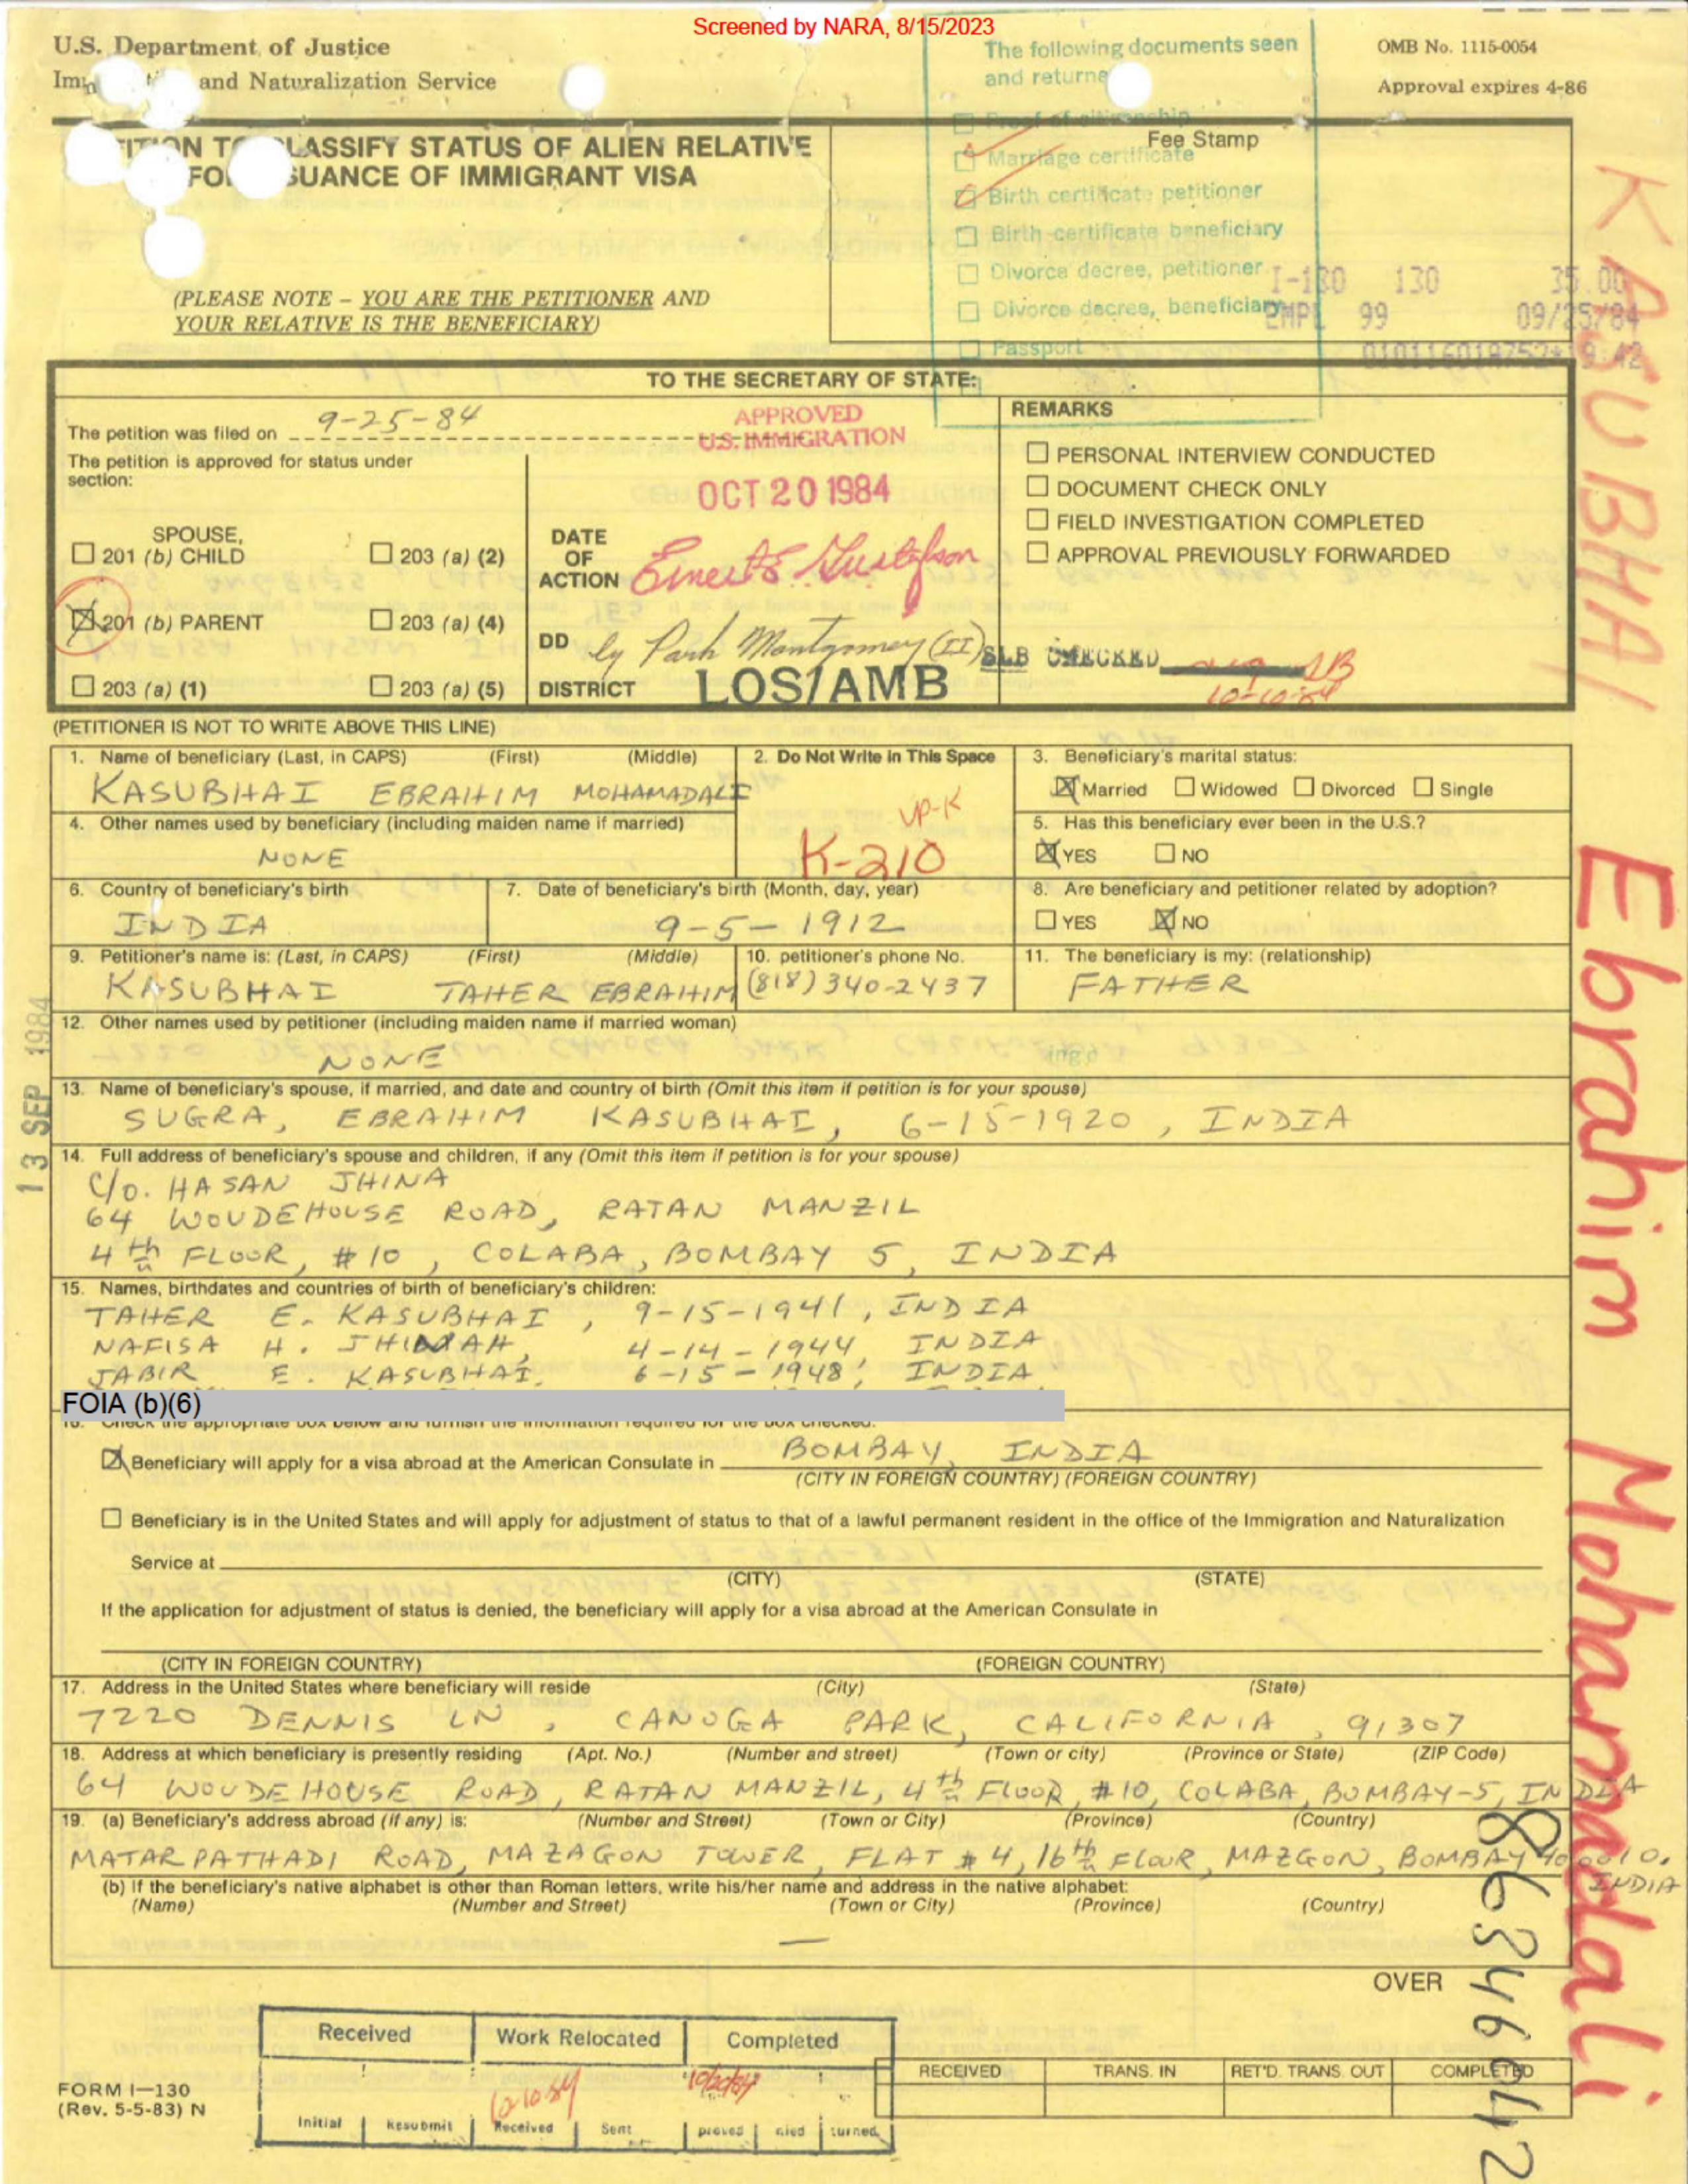 Screened by NARA, 8/15/2023
U.S. Department of Justice
and Naturalization Service
The following documents seen
and returne
OMB No. 1115-0054
Approval expires 4-86
ITION T LASSIFY STATUS OF ALIEN RELATIVE
FO SUANCE OF IMMIGRANT VISA
(PLEASE NOTE – YOU ARE THE PETITIONER AND
YOUR RELATIVE IS THE BENEFICIARY)
Fee Stamp
Proof of citizenship
Marriage certificate
Birth certificate petitioner
Birth certificate beneficiary
Divorce decree, petitioner
Divorce decree, beneficiary
Passport
I-130 130 35.00
EMPL 99 09/25/84
TO THE SECRETARY OF STATE:
The petition was filed on 9-25-84
The petition is approved for status under
section:
SPOUSE,
201 (b) CHILD
203 (a) (2)
201 (b) PARENT
203 (a) (4)
203 (a) (1)
203 (a) (5)
APPROVED
U.S. IMMIGRATION
OCT 20 1984
DATE
OF
ACTION
Ernest E. Gustafson
DD
by Park Montgomery (II)
DISTRICT
LOS/AMB
REMARKS
PERSONAL INTERVIEW CONDUCTED
DOCUMENT CHECK ONLY
FIELD INVESTIGATION COMPLETED
APPROVAL PREVIOUSLY FORWARDED
SLB CHECKED
10-10-84
(PETITIONER IS NOT TO WRITE ABOVE THIS LINE)
1. Name of beneficiary (Last, in CAPS) (First) (Middle)
KASUBHAI EBRAHIM MOHAMADALI
2. Do Not Write in This Space
VP-K
K-210
3. Beneficiary's marital status:
Married Widowed Divorced Single
4. Other names used by beneficiary (including maiden name if married)
NONE
5. Has this beneficiary ever been in the U.S.?
YES NO
6. Country of beneficiary's birth
INDIA
7. Date of beneficiary's birth (Month, day, year)
9-5-1912
8. Are beneficiary and petitioner related by adoption?
YES NO
9. Petitioner's name is: (Last, in CAPS) (First) (Middle)
KASUBHAI TAHER EBRAHIM
10. petitioner's phone No.
(818) 340-2437
11. The beneficiary is my: (relationship)
FATHER
12. Other names used by petitioner (including maiden name if married woman)
NONE
13. Name of beneficiary's spouse, if married, and date and country of birth (Omit this item if petition is for your spouse)
SUGRA, EBRAHIM KASUBHAI, 6-15-1920, INDIA
14. Full address of beneficiary's spouse and children, if any (Omit this item if petition is for your spouse)
C/O. HASAN JHINA
64 WOUDEHOUSE ROAD, RATAN MANZIL
4th FLOOR, #10, COLABA, BOMBAY 5, INDIA
15. Names, birthdates and countries of birth of beneficiary's children:
TAHER E. KASUBHAI, 9-15-1941, INDIA
NAFISA H. JHINAH, 4-14-1944, INDIA
JABIR E. KASUBHAI, 6-15-1948, INDIA
FOIA (b)(6)
16. Check the appropriate box below and furnish the information required for the box checked:
Beneficiary will apply for a visa abroad at the American Consulate in BOMBAY, INDIA
(CITY IN FOREIGN COUNTRY) (FOREIGN COUNTRY)
Beneficiary is in the United States and will apply for adjustment of status to that of a lawful permanent resident in the office of the Immigration and Naturalization
Service at
(CITY) (STATE)
If the application for adjustment of status is denied, the beneficiary will apply for a visa abroad at the American Consulate in
(CITY IN FOREIGN COUNTRY) (FOREIGN COUNTRY)
17. Address in the United States where beneficiary will reside (City) (State)
7220 DENNIS LN, CANOGA PARK, CALIFORNIA, 91307
18. Address at which beneficiary is presently residing (Apt. No.) (Number and street) (Town or city) (Province or State) (ZIP Code)
64 WOUDEHOUSE ROAD, RATAN MANZIL, 4th FLOOR, #10, COLABA, BOMBAY-5, INDIA
19. (a) Beneficiary's address abroad (if any) is: (Number and Street) (Town or City) (Province) (Country)
MATARPATHADI ROAD, MAZAGON TOWER, FLAT #4, 16th FLOUR, MAZGON, BOMBAY 400010.
INDIA
(b) If the beneficiary's native alphabet is other than Roman letters, write his/her name and address in the native alphabet:
(Name) (Number and Street) (Town or City) (Province) (Country)
—
OVER
Received Work Relocated Completed
10-10-84
10/20/84
Initial Resubmit Received Sent proved nied turned
RECEIVED TRANS. IN RET'D. TRANS. OUT COMPLETED
FORM I—130
(Rev. 5-5-83) N
13 SEP 1984
KASUBHAI Ebrahim Mohamadali